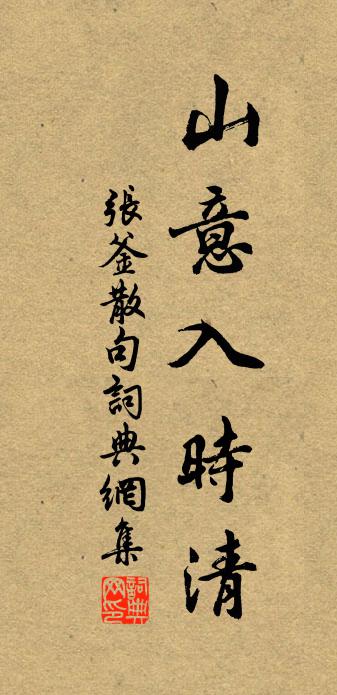 山意入時清
張釜散句詞典網集
詞典網印